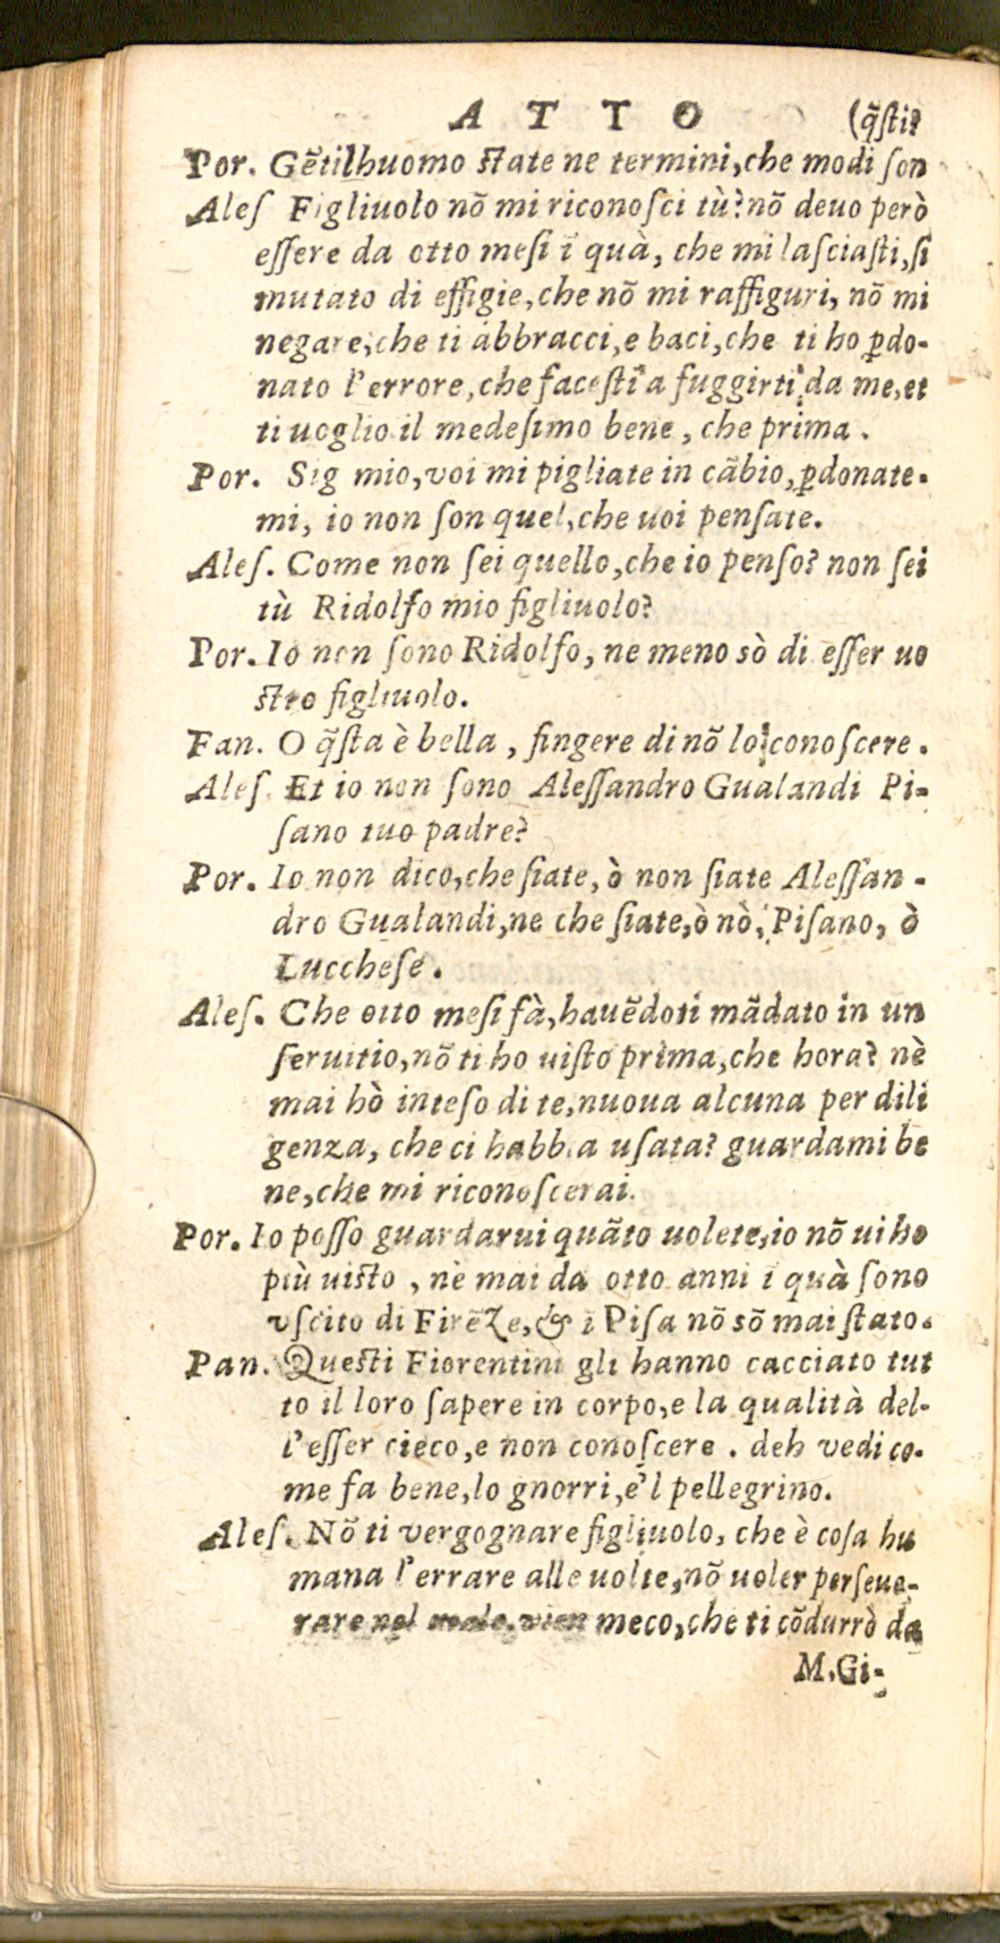 ATTO (q̃ſti?
Por. Gẽtilhuomo ſtate ne termini, che modi ſon
Aleſ Figliuolo nõ mi riconoſci tù? nõ deuo però
eſſere da otto meſi ĩ quà, che mi laſciaſti, ſi
mutato di effigie, che nõ mi raffiguri, nõ mi
negare, che ti abbracci, e baci, che ti ho ꝑdo-
nato l'errore, che faceſti a fuggirti da me, et
ti uoglio il medeſimo bene, che prima.
Por. Sig mio, voi mi pigliate in cãbio, ꝑdonate-
mi, io non ſon quel, che uoi penſate.
Aleſ. Come non ſei quello, che io penſo? non ſei
tù Ridolfo mio figliuolo?
Por. Io non ſono Ridolfo, ne meno sò di eſſer uo
ſtro figliuolo.
Fan. O q̃ſta è bella, fingere di nõ lo conoſcere.
Aleſ. Et io non ſono Aleſſandro Gualandi Pi-
ſano tuo padre?
Por. Io non dico, che ſiate, ò non ſiate Aleſſan-
dro Gualandi, ne che ſiate, ò nò, Piſano, ò
Luccheſe.
Aleſ. Che otto meſi fà, hauẽdoti mãdato in un
ſeruitio, nõ ti ho uiſto prima, che hora? nè
mai hò inteſo di te, nuoua alcuna per dili
genza, che ci habbia uſata? guardami be
ne, che mi riconoſcerai.
Por. Io poſſo guardarui quãto uolete, io nõ ui ho
più uiſto, nè mai da otto anni ĩ quà ſono
vſcito di Firẽze, & ĩ Piſa nõ sõ mai ſtato.
Pan. Queſti Fiorentini gli hanno cacciato tut
to il loro ſapere in corpo, e la qualità del-
l'eſſer cieco, e non conoſcere. deh vedi co-
me fa bene, lo gnorri, e'l pellegrino.
Aleſ. Nõ ti vergognare figliuolo, che è coſa hu
mana l'errare alle uolte, nõ uoler perſeue-
rare nel male. vien meco, che ti cõdurrò da
M. Gi-